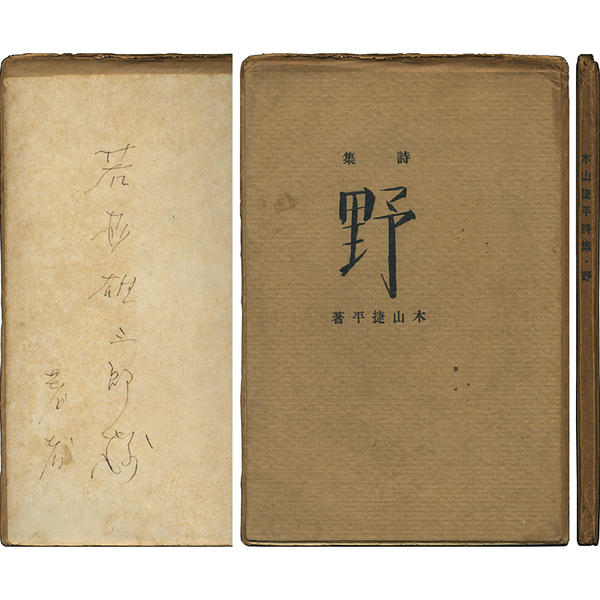 若杉雄三郎様
著者
詩集
野
木山捷平著
木山捷平詩集・野